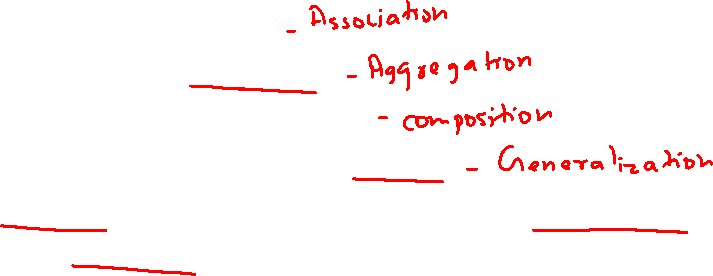 - Association
- Aggregation
- composition
- Generalization